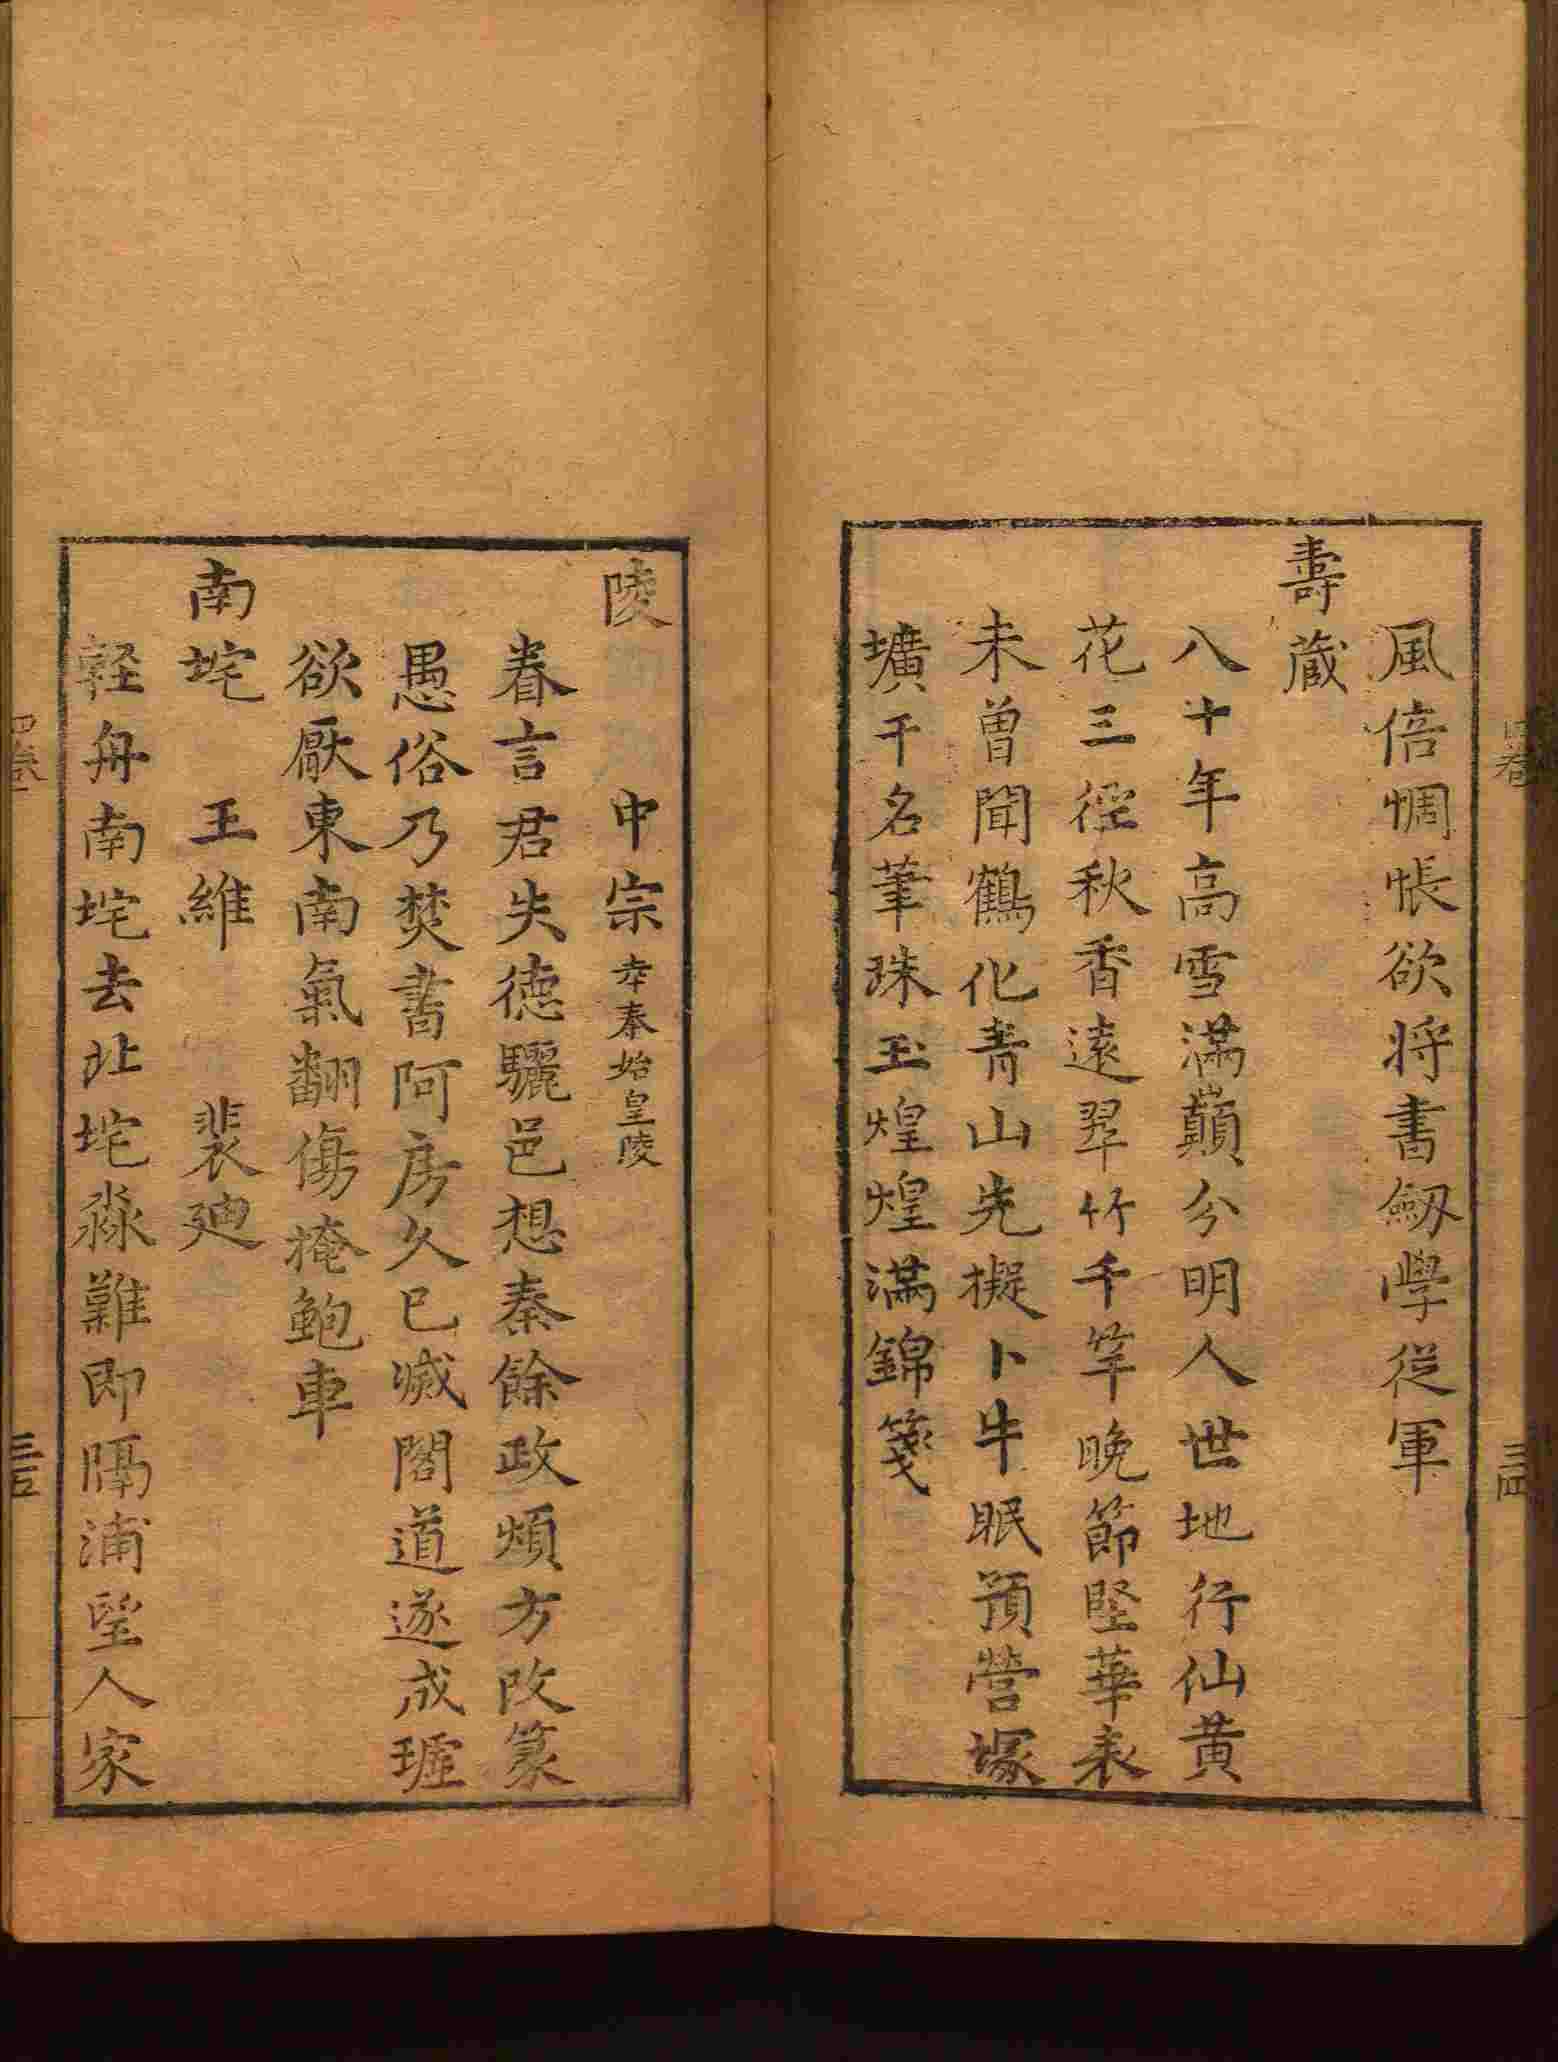 風倍惆悵欲将書劔學從軍
壽蔵
八十年高雪滿巔分明人世地行仙黄
花三徑秋香遠翠竹千竿晚節堅華表
未曽聞鶴化青山先擬卜牛眠預營塚
壙干名筆珠玉煌煌滿錦箋
四卷
三四
陵
中宗 幸秦始皇陵
眷言君失德驪邑想秦餘政煩方改篆
愚俗乃焚書阿房久已滅閣道遂成墟
欲厭東南氣翻傷掩鮑車
南垞 王維 裴廸
軽舟南垞去北垞淼難即隔浦望人家
四卷
三五